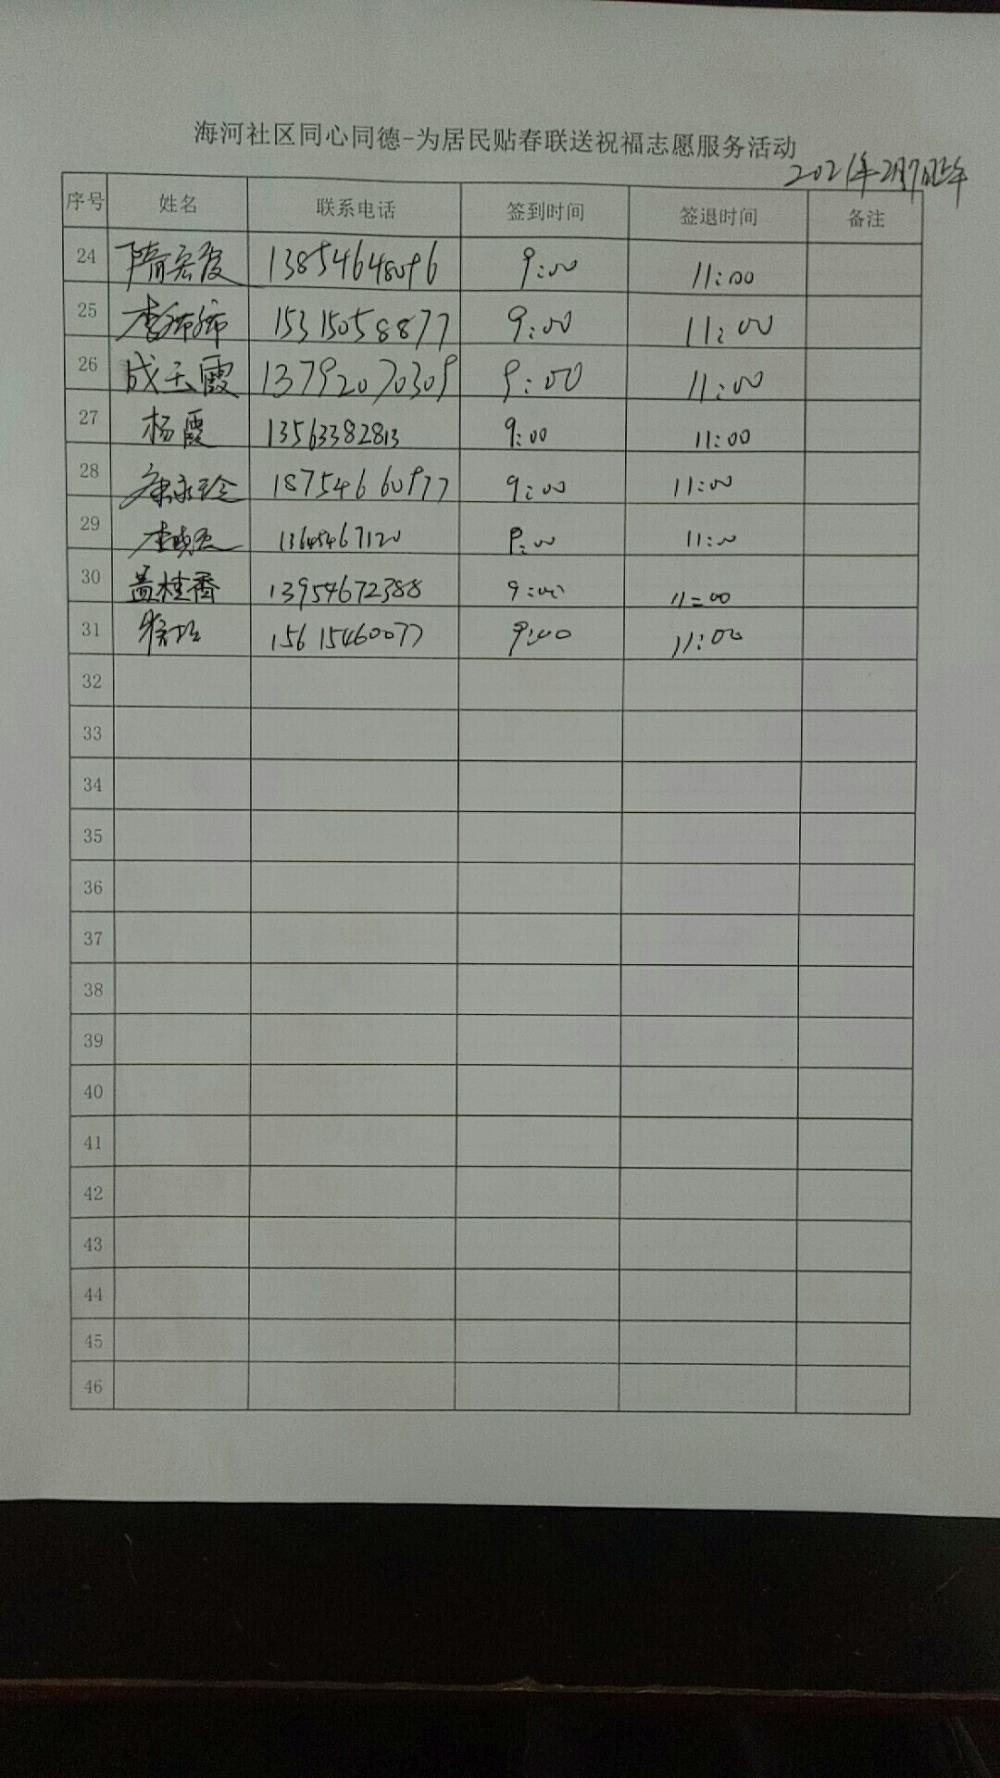 海河社区同心同德-为居民贴春联送祝福志愿服务活动
2021年2月7日上午
序号 姓名 联系电话 签到时间 签退时间 备注
24 隋 13854648096 9:00 11:00
25 李 15315058877 9:00 11:00
26 成玉霞 13792070309 9:00 11:00
27 杨霞 13563382813 9:00 11:00
28 康永玲 18754660977 9:00 11:00
29 李 13645467120 9:00 11:00
30 盖桂香 13954672388 9:00 11:00
31 15615460077 9:00 11:00
32
33
34
35
36
37
38
39
40
41
42
43
44
45
46